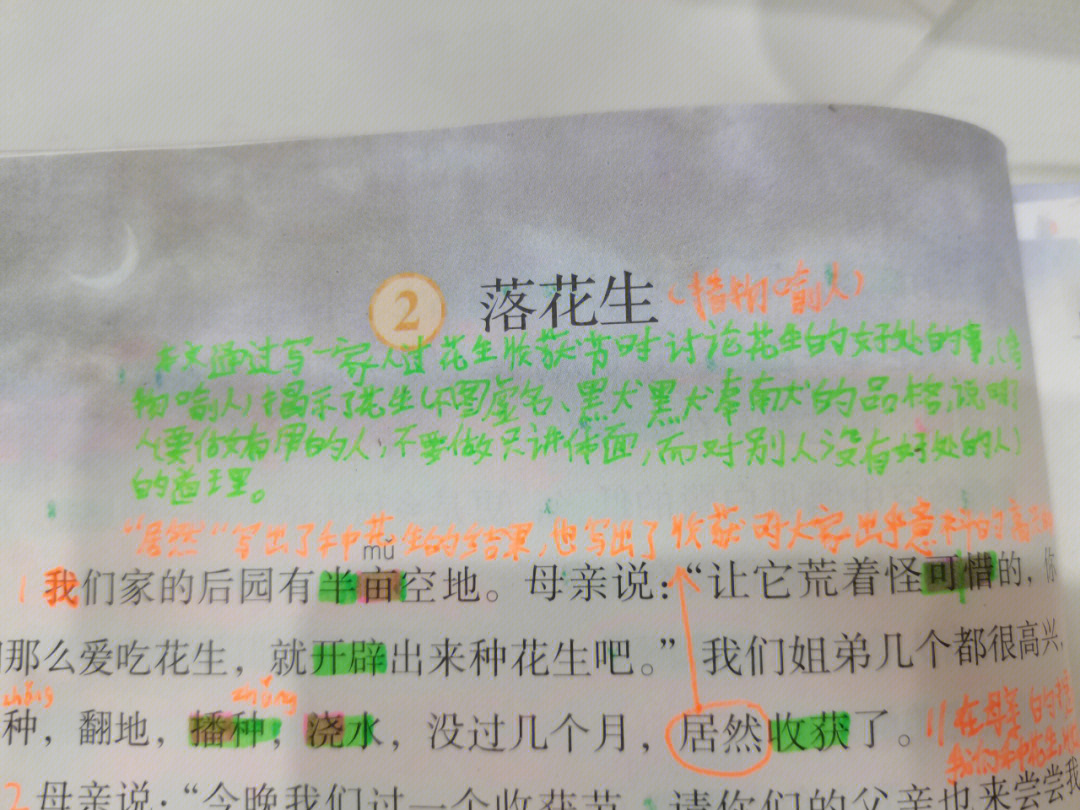 2 落花生(借物喻人)
本文通过写一家人过花生收获节时讨论花生的好处的事,(借
物喻人)揭示了花生(不图虚名、默默奉献)的品格,说明
人(要做有用的人,不要做只讲体面,而对别人没有好处的人)
的道理。
"居然"写出了种花生的结果,也写出了收获时大家出乎意料的高
mǔ
1 我们家的后园有半亩空地。母亲说:“让它荒着怪可惜的,你
那么爱吃花生,就开辟出来种花生吧。”我们姐弟几个都很高兴,
zhǒng zhǒng
种,翻地,播种,浇水,没过几个月,居然收获了。
11在母亲的
我们种花生
2 母亲说:“今晚我们过一个收获节,请你们的父亲也来尝尝我